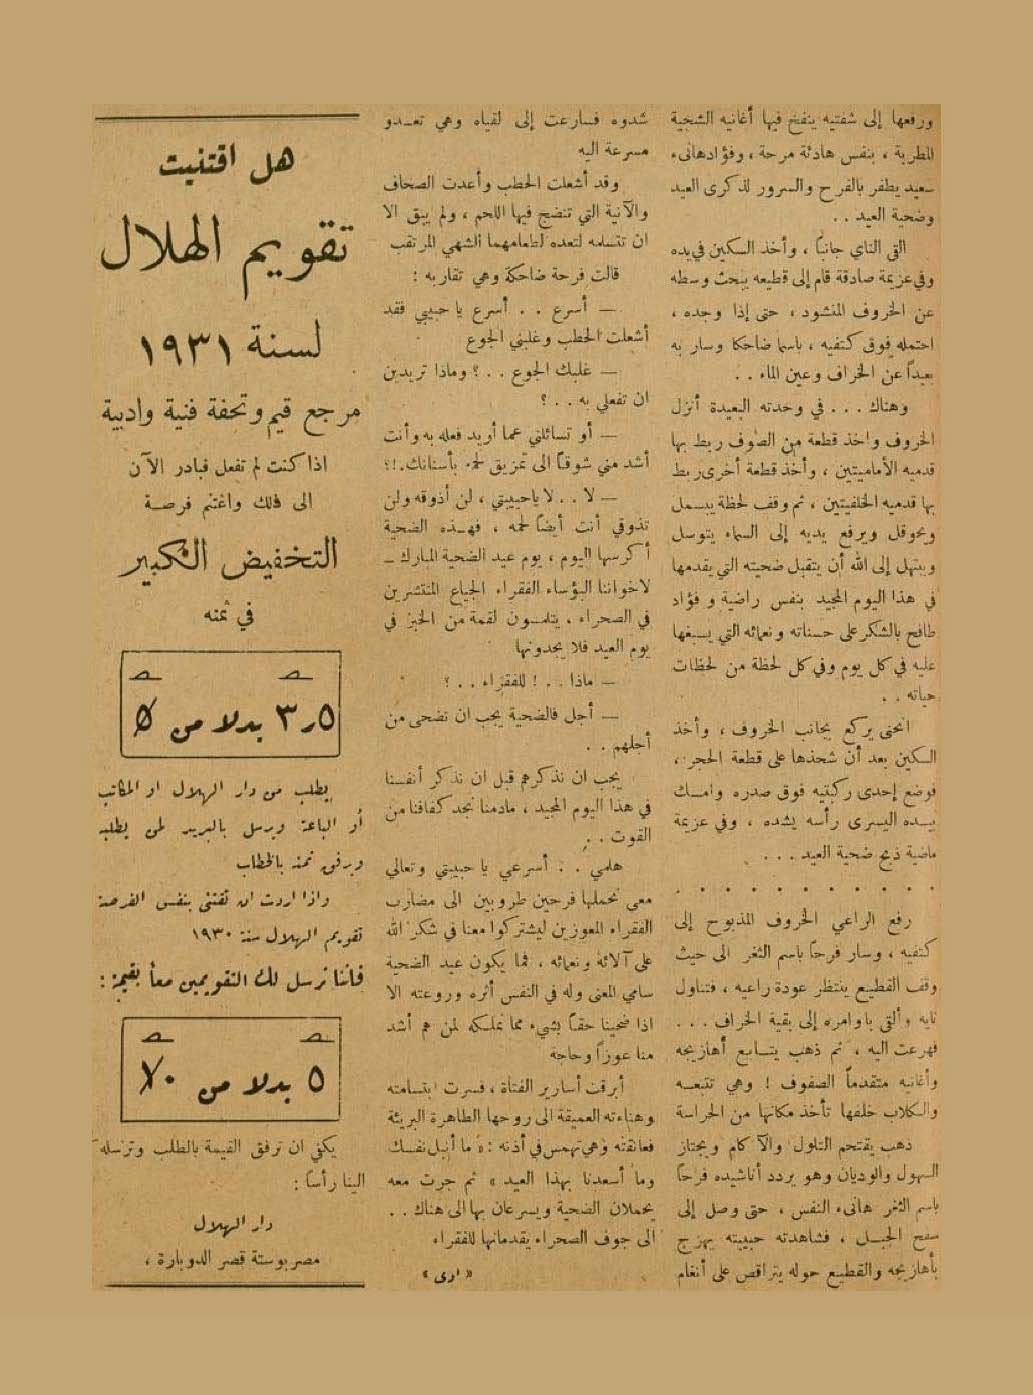 ورفعها إلى شفتيه ينفخ فيها أغانيه الشجية
المطربة ، بنفس هادئة مرحة ، وفؤاد هانىء
سعيد يطفر بالفرح والسرور لذكرى العيد
وضحية العيد . .
القى الناي جانباً ، وأخذ السكين في يده
وفي عزيمة صادقة قام إلى قطيعه يبحث وسطه
عن الخروف المنشود ، حتى إذا وجده ،
احتمله فوق كتفيه ، باسما ضاحكا وسار به
بعيداً عن الخراف وعين الماء . .
وهناك . . . في وحدته البعيدة أنزل
الخروف واخذ قطعة من الصوف ربط بها
قدميه الأماميتين ، وأخذ قطعة أخرى ربط
بها قدميه الخلفيتين ، ثم وقف لحظة يبسمل
ويحوقل ويرفع يديه إلى السماء يتوسل
ويبتهل إلى الله أن يتقبل ضحيته التي يقدمها
في هذا اليوم المجيد بنفس راضية و فؤاد
طافح بالشكر على حسناته ونعمائه التي يسبغها
عليه في كل يوم وفي كل لحظة من لحظات
حياته . .
انحنى يركع بجانب الخروف ، وأخذ
السكين بعد أن شحذها على قطعة الحجر ،
فوضع إحدى ركبتيه فوق صدره وامسك
بيده اليسرى رأسه يشده ، وفي عزيمة
ماضية ذبح ضحية العيد . . .
. . . . . . . . . . .
رفع الراعي الخروف المذبوح إلى
كتفيه ، وسار فرحاً باسم الثغر الى حيث
وقف القطيع ينتظر عودة راعيه ، فتناول
نايه وألقى باوامره إلى بقية الخراف . . .
فهرعت اليه ، ثم ذهب يتابع أهازيجه
وأغانيه متقدماً الصفوف ! وهي تتبعه
والكلاب خلفها تأخذ مكانها من الحراسة
ذهب يقتحم التلول والآكام ويجتاز
السهول والوديان وهو يردد أناشيده فرحاً
باسم الثغر هانىء النفس ، حتى وصل إلى
سفح الجبل ، فشاهدته حبيبته يهزج
بأهازيجه والقطيع حوله يتراقص على أنغام
شدوه فسارعت إلى لقياه وهي تعدو
مسرعة اليه
وقد أشعلت الحطب وأعدت الصحاف
والآنية التي تنضج فيها اللحم ، ولم يبق الا
ان تتسلمه لتعده لطعامهما الشهي المرتقب
قالت فرحة ضاحكة وهي تقاربه :
— أسرع . . أسرع يا حبيبي فقد
أشعلت الحطب وغلبني الجوع
— غلبك الجوع . . ؟ وماذا تريدين
ان تفعلي به . . ؟
— أو تسائلني عما أريد فعله به وأنت
أشد مني شوقاً الى تمزيق لحمه بأسنانك.!؟
— لا . . لا ياحبيبتي ، لن أذوقه ولن
تذوقي أنت أيضاً لحمه ، فهذه الضحية
أكرسها اليوم ، يوم عيد الضحية المبارك —
لاخواننا البؤساء الفقراء الجياع المنتشرين
في الصحراء ، يتلمسون لقمة من الخبز في
يوم العيد فلا يجدونها
— ماذا . . ! للفقراء . . ؟
— أجل فالضحية يجب ان نضحى من
أجلهم . .
يجب ان نذكرهم قبل ان نذكر أنفسنا
في هذا اليوم المجيد ، مادمنا نجد كفافنا من
القوت . .
هلمي . . أسرعي يا حبيبتي وتعالي
معى نحملها فرحين طروبين الى مضارب
الفقراء المعوزين ليشتركوا معنا في شكر الله
على آلائه ونعمائه ، فما يكون عيد الضحية
سامي المعنى وله في النفس أثره وروعته الا
اذا ضحينا حقاً بشيء مما نملكه لمن هم أشد
منا عوزاً وحاجة
أبرقت أسارير الفتاة ، فسرت ابتسامته
وهناءته العميقة الى روحها الطاهرة البريئة
فعانقته وهي تهمس في أذنه : « ما أنبل نفسك
وما أسعدنا بهذا العيد » ثم جرت معه
يحملان الضحية ويسرعان بها الى هناك . .
الى جوف الصحراء يقدمانها للفقراء
« ارى »
هل اقتنيت
تقويم الهلال
لسنة ١٩٣١
مرجع قيم وتحفة فنية وادبية
اذا كنت لم تفعل فبادر الآن
الى ذلك واغتنم فرصة
التخفيض الكبير
في ثمنه
٣٫٥ بدلا من ٥
يطلب من دار الهلال او المكاتب
أو الباعة ويرسل بالبريد لمن يطلبه
ويرفق ثمنه بالخطاب
واذا اردت ان تقتنى بنفس الفرصة
تقويم الهلال سنة ١٩٣٠
فاننا نرسل لك التقويمين معاً بقيمة :
٥ بدلا من ١٠
يكفي ان ترفق القيمة بالطلب وترسله
الينا رأساً :
دار الهلال
مصر بوستة قصر الدوبارة ،